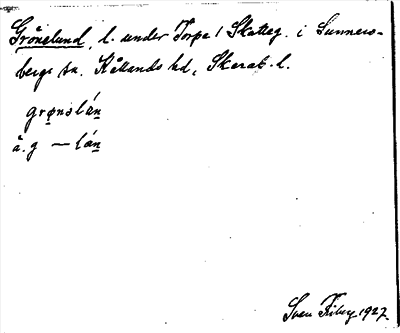 Grönslund, l. under Torpa 1 Skatteg. i Sunners-
bergs sn. Kållands hd, Skarab. l.
grønslán
å. g — lán
Sven 1927.